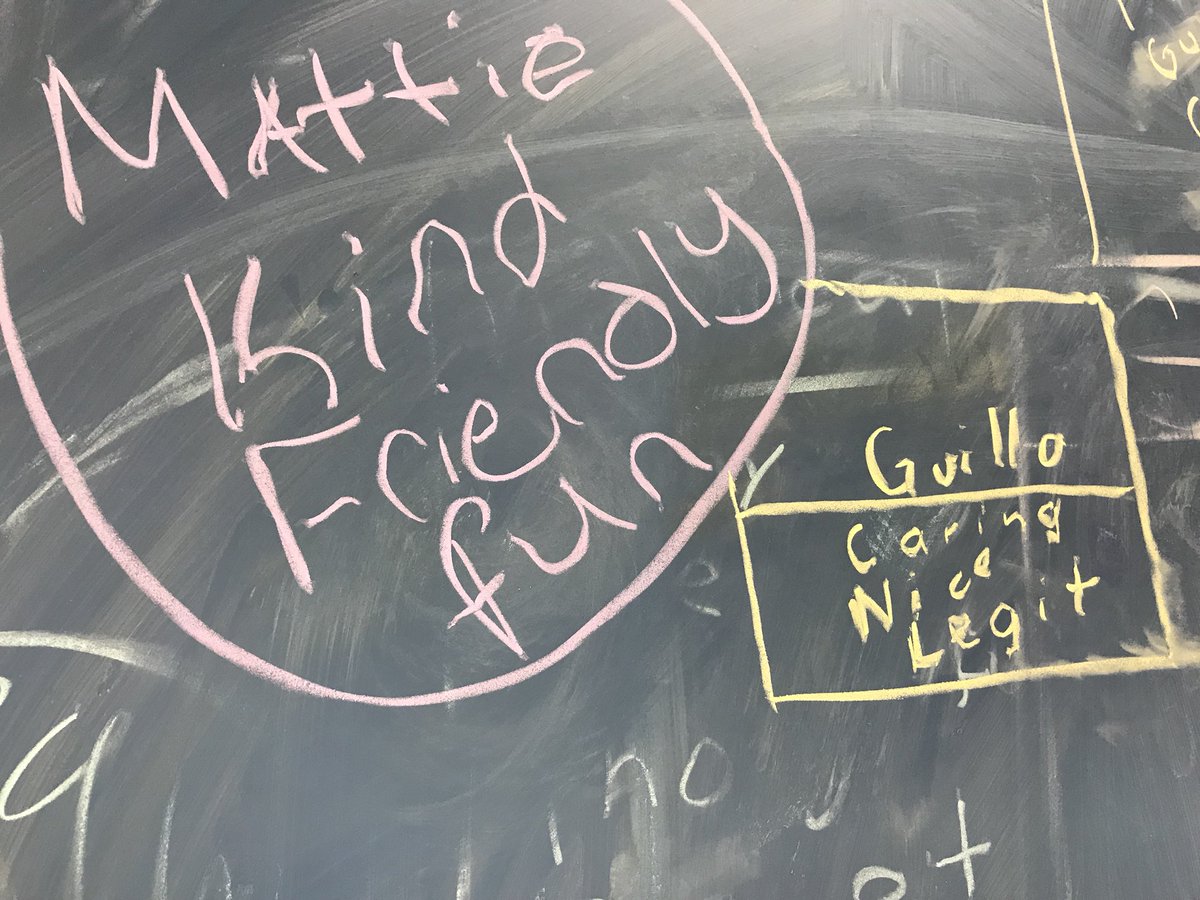 Mattie
Kind
Friendly
fun
Guillo
Caring
Nice
Legit
Gu
no
et